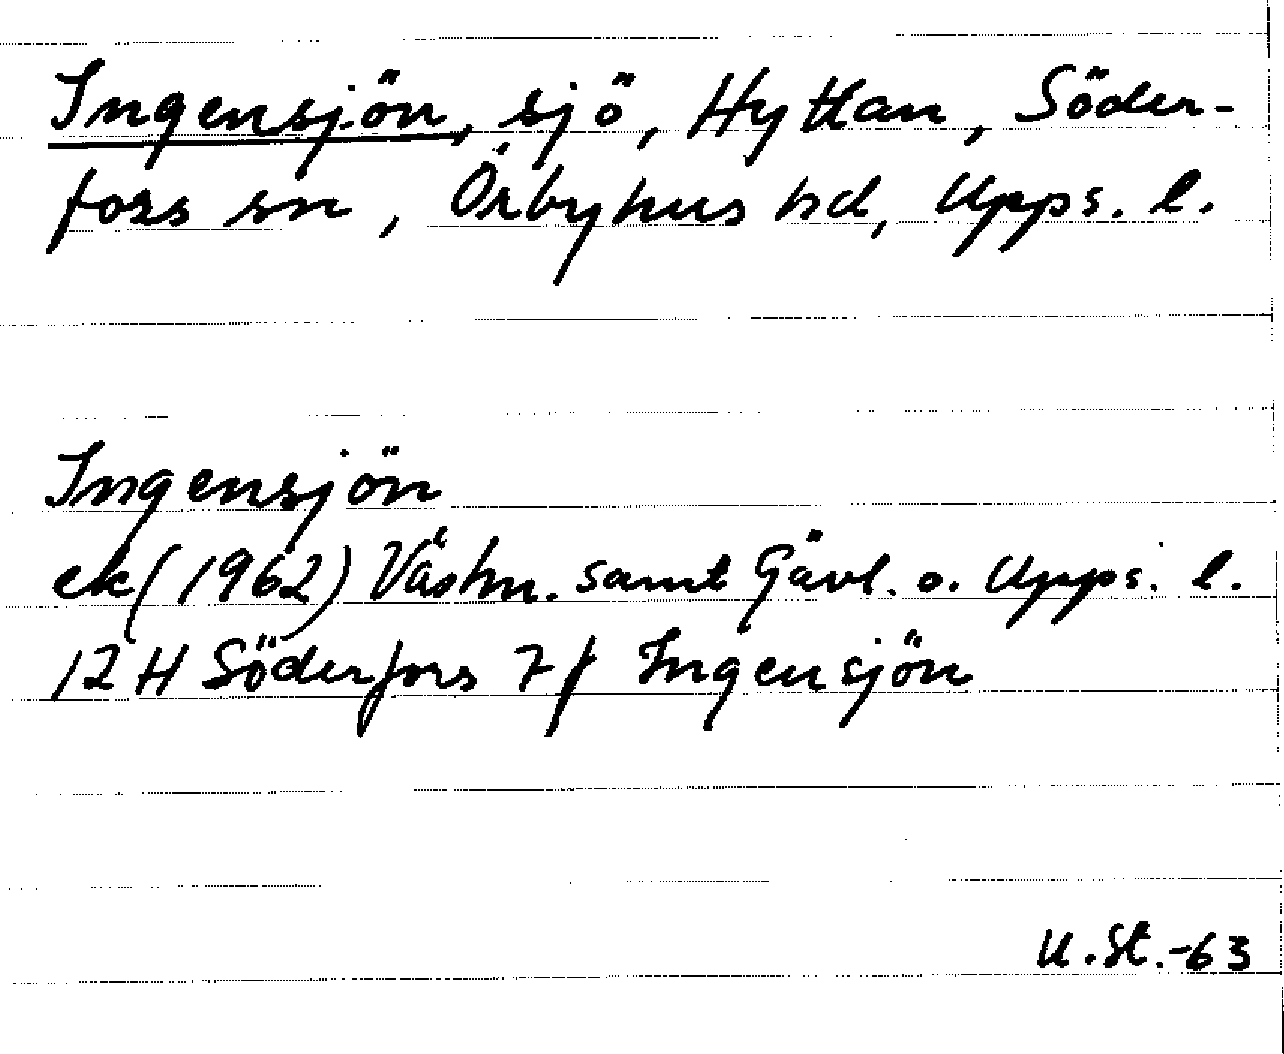 Ingensjön, sjö, Hyttan, Söder-
fors sn, Örbyhus hd, Upps. l.
Ingensjön
ek (1962) Västm. samt Gävl. o. Upps. l.
12 H Söderfors 7f Ingensjön
U.St.-63